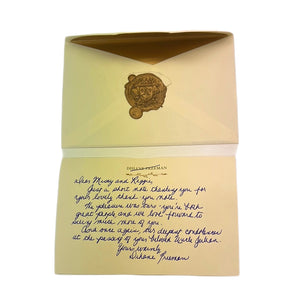 Dear Missy and Reggie,
Just a short note thanking you for
your lovely thank you note.
The pleasure was ours - you're both
great people, and we look forward to
seeing much more of you.
And once again, our deepest condolences
at the passing of your beloved Uncle Julian.
Yours warmly,
Freeman